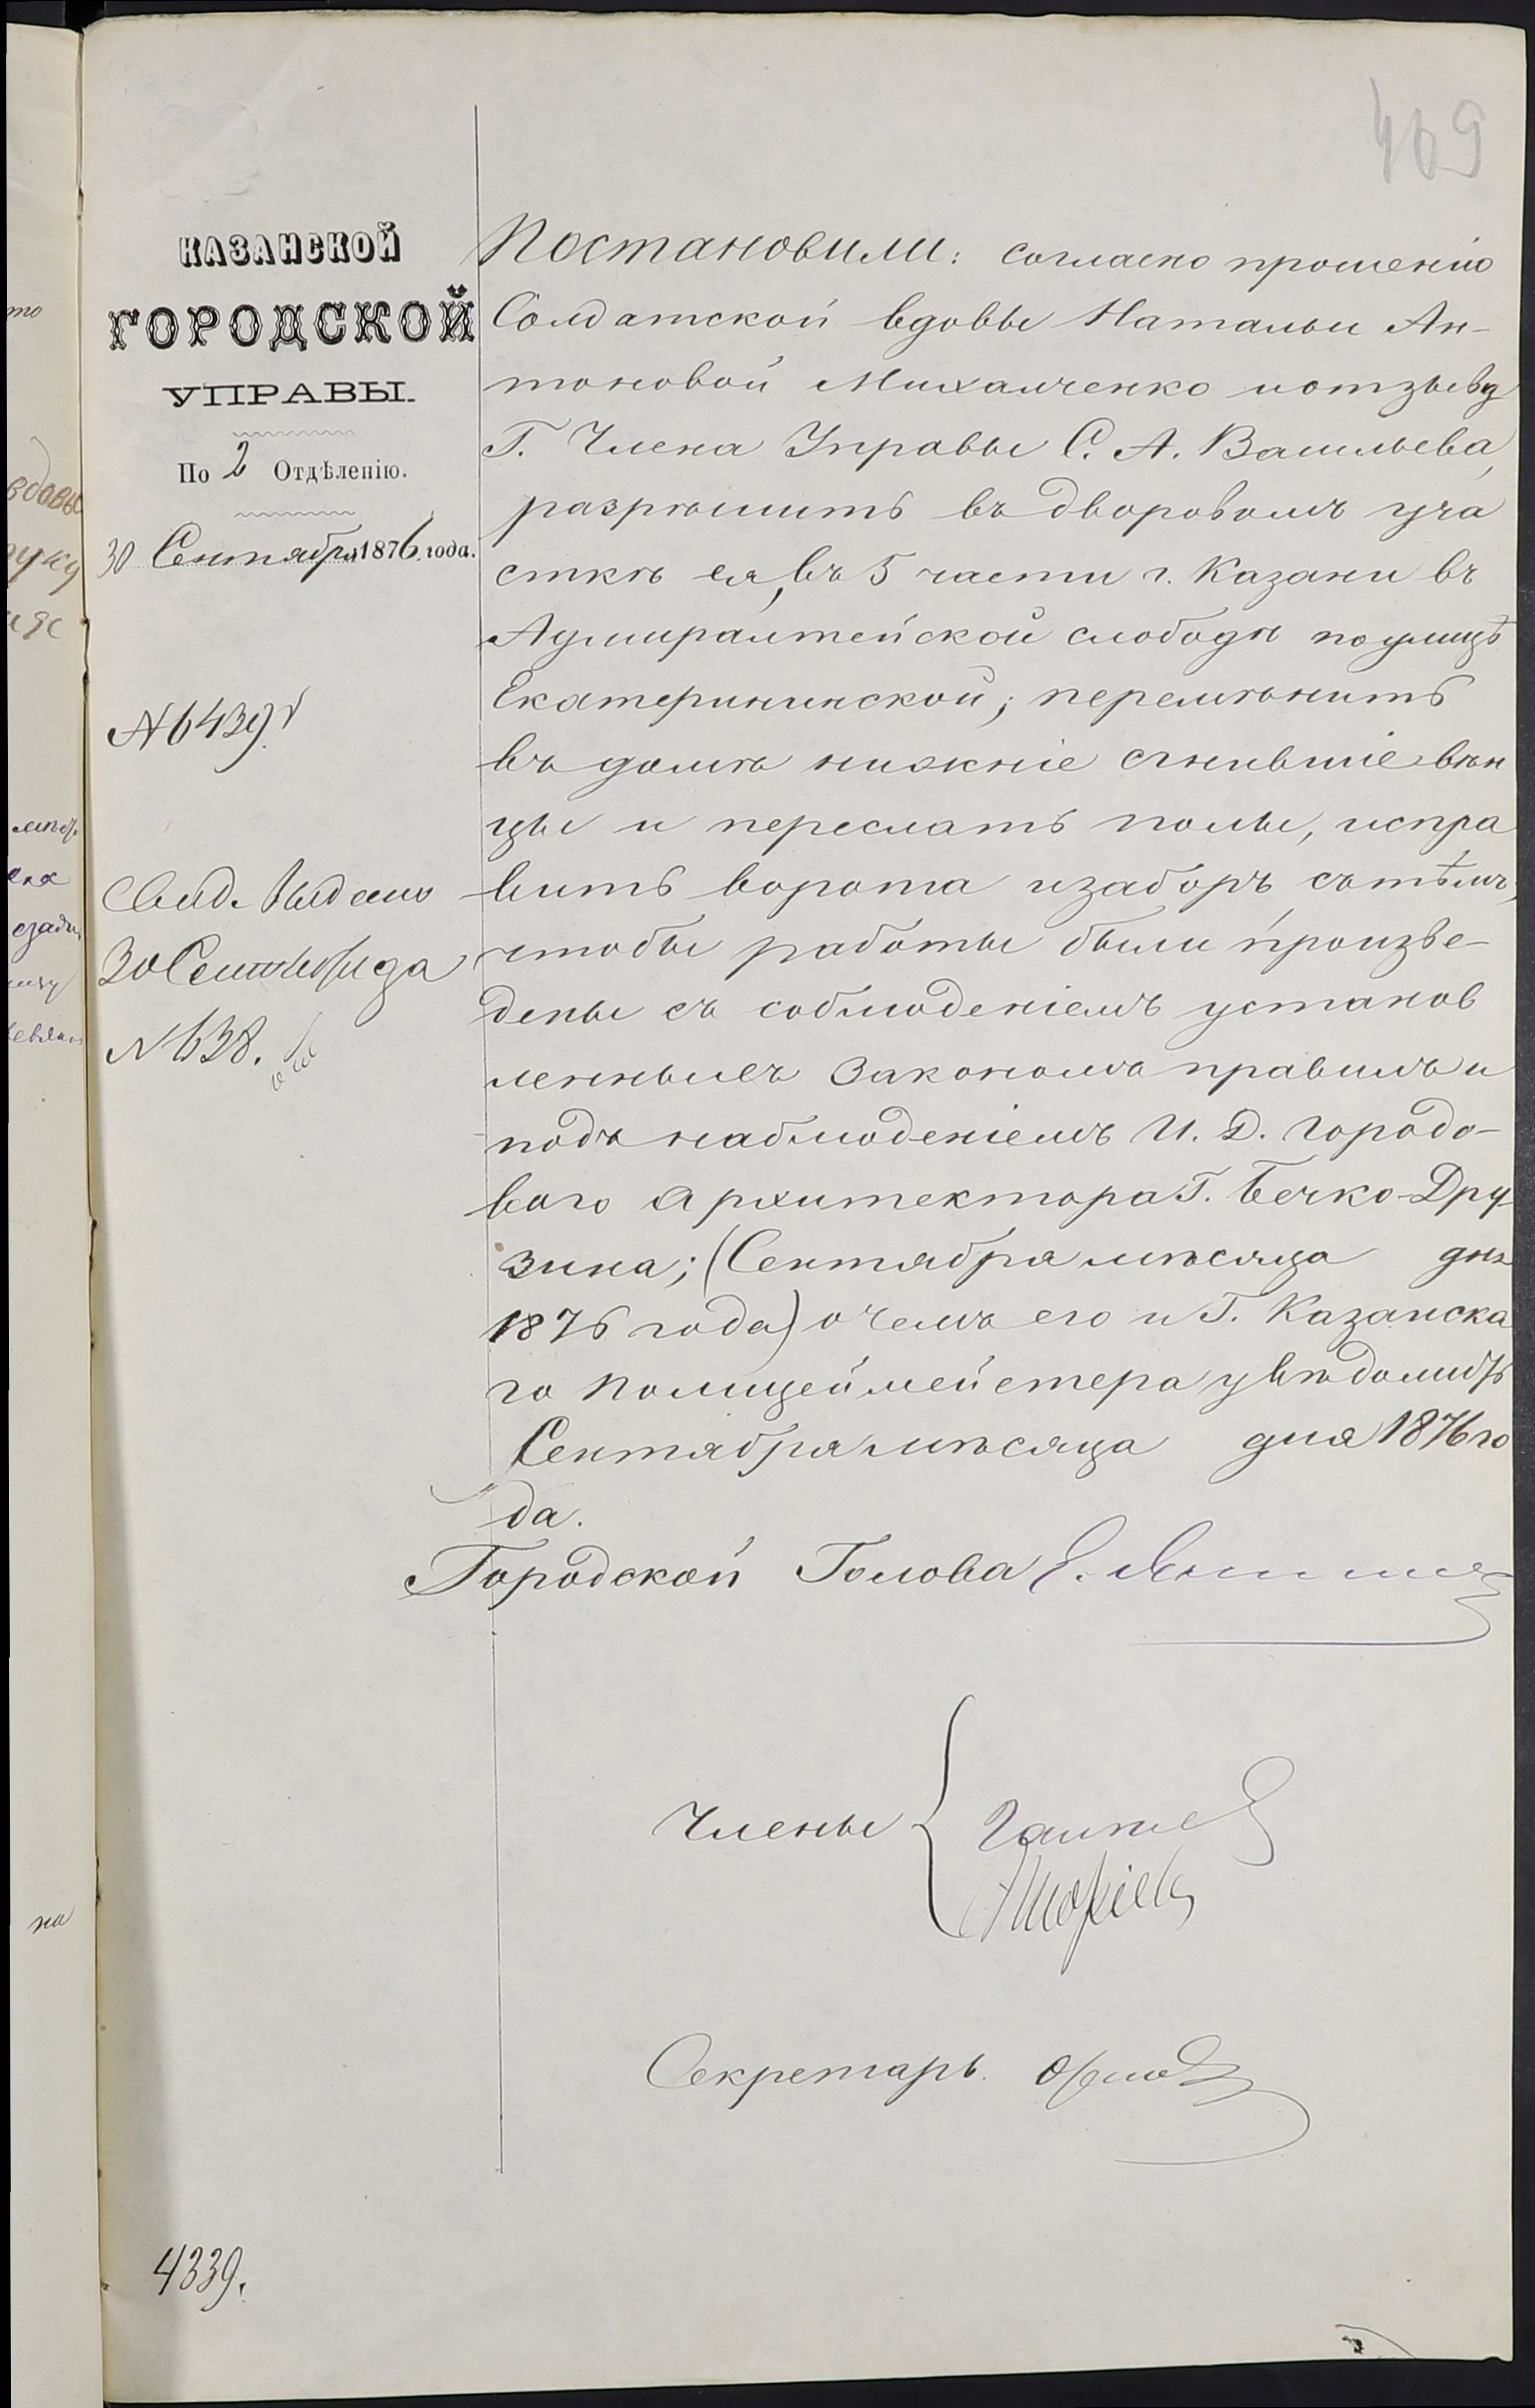 409
КАЗАНСКОЙ
ГОРОДСКОЙ
УПРАВЫ.
По 2 Отдѣленію.
30 Сентября 1876 года.
№ 6439
Свид. Выдано
30 Сентября за
№ 638.
Постановили: согласно прошенію
Солдатской вдовы Натальи Ан-
тоновой Михалченко и отзыву
Г. Члена Управы С. А. Васильева,
разрѣшить въ дворовомъ уча
сткѣ ея, въ 5 части г. Казани въ
Адмиралтейской слободѣ по улицѣ
Екатерининской; перемѣнить
въ домѣ нижніе сгнившіе вѣн
цы и переслать полы, испра
вить ворота и заборъ съ тѣмъ,
чтобы работы были произве-
дены съ соблюденіемъ установ
ленныхъ Закономъ правилъ и
подъ наблюденіемъ И. Д. Городо-
ваго Архитектора Г. Бечко-Дру
зина; (Сентября мѣсяца дня
1876 года) о чемъ его и Г. Казанска
го Полицеймейстера увѣдомить
Сентября мѣсяца дня 1876 го
да.
Городской Голова Е.
Члены
Секретарь Орлов
4339.